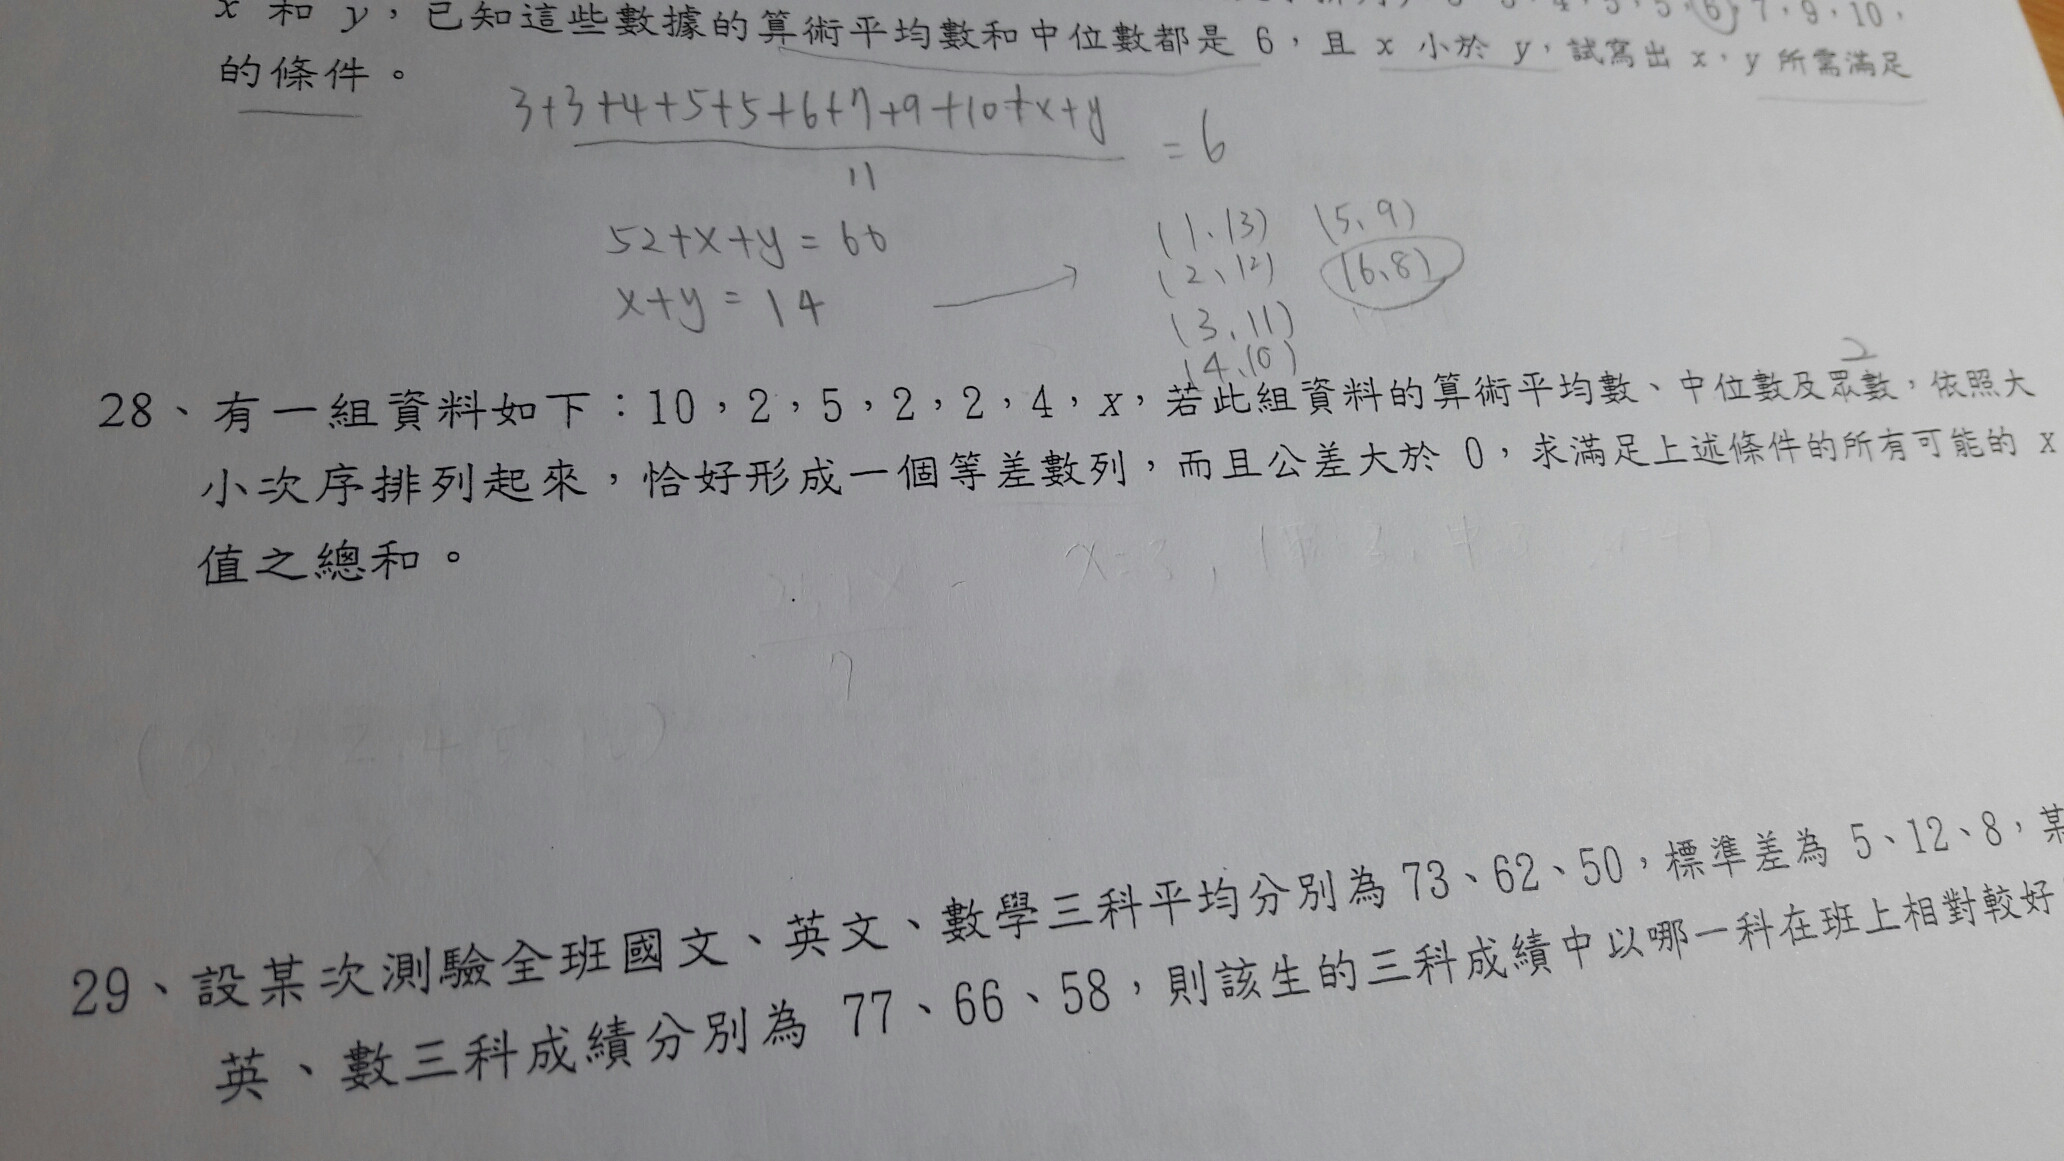 x 和 y，已知這些數據的算術平均數和中位數都是 6，且 x 小於 y，試寫出 x，y 所需滿足
的條件。
3+3+4+5+5+6+7+9+10+x+y
= 6
11
52+x+y = 66
x+y = 14
(1、13) (5、9)
(2、12) (6、8)
(3、11)
(4、10)
2
28、有一組資料如下：10，2，5，2，2，4，x，若此組資料的算術平均數、中位數及眾數，依照大
小次序排列起來，恰好形成一個等差數列，而且公差大於 0，求滿足上述條件的所有可能的 x
值之總和。
25+x
7
x=3
29、設某次測驗全班國文、英文、數學三科平均分別為 73、62、50，標準差為 5、12、8，某
英、數三科成績分別為 77、66、58，則該生的三科成績中以哪一科在班上相對較好